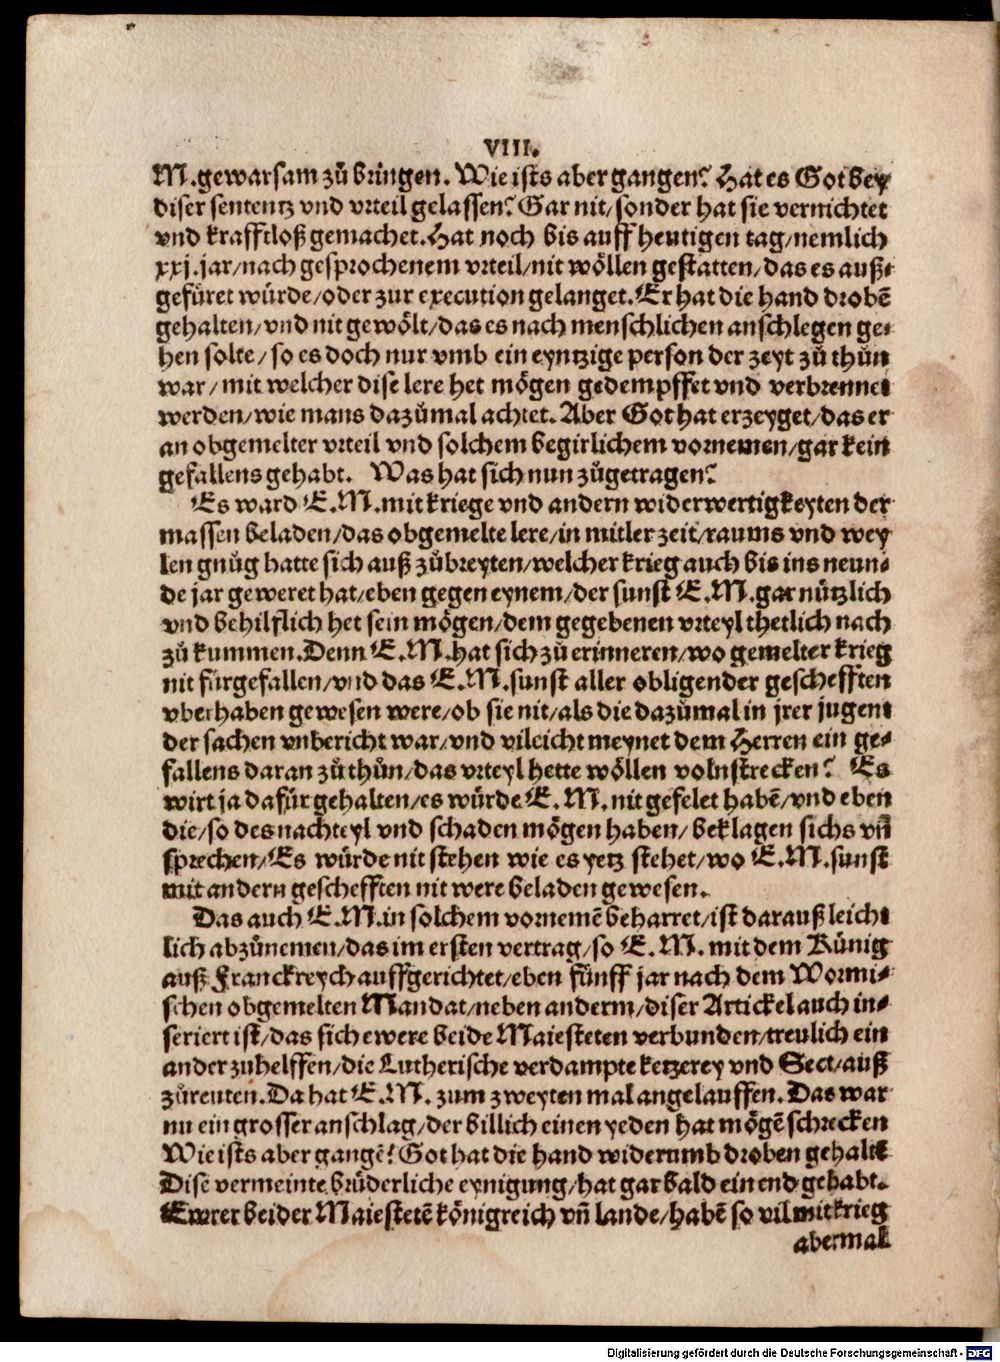 VIII.
M.gewarsam zů bringen. Wie ists aber gangen? Hat es Got bey
diser sententz vnd vrteil gelassen? Gar nit/sonder hat sie vernichtet
vnd krafftloß gemachet. Hat noch bis auff heutigen tag/nemlich
xxj.jar/nach gesprochenem vrteil/nit wöllen gestatten/das es auß-
gefüret würde/oder zur execution gelanget. Er hat die hand drobē
gehalten/vnd nit gewölt/das es nach menschlichen anschlegen ge-
hen solte/so es doch nur vmb ein eyntzige person der zeyt zů thůn
war/mit welcher dise lere het mögen gedempffet vnd verbrennet
werden/wie mans dazůmal achtet. Aber Got hat erzeyget/das er
an obgemelter vrteil vnd solchem begirlichem vornemen/gar kein
gefallens gehabt. Was hat sich nun zůgetragen?
Es ward E.M.mit kriege vnd andern widerwertigkeyten der
massen beladen/das obgemelte lere/in mitler zeit/raums vnd wey
len gnůg hatte sich auß zůbreyten/welcher krieg auch bis ins neun-
de jar geweret hat/eben gegen eynem/der sunst E.M.gar nützlich
vnd behilflich het sein mögen/dem gegebenen vrteyl thetlich nach
zů kummen. Denn E.M.hat sich zů erinneren/wo gemelter krieg
nit fürgefallen/vnd das E.M.sunst aller obligender geschefften
vberhaben gewesen were/ob sie nit/als die dazůmal in jrer jugent
der sachen vnbericht war/vnd vileicht meynet dem Herren ein ge-
fallens daran zů thůn/das vrteyl hette wöllen volnstrecken? Es
wirt ja dafür gehalten/es würde E.M. nit gefelet habē/vnd eben
die/so des nachteyl vnd schaden mögen haben/beklagen sichs vñ
sprechen/Es würde nit stehen wie es yetz stehet/wo E.M.sunst
mit andern geschefften nit were beladen gewesen.
Das auch E.M.in solchem vornemē beharret/ist darauß leicht
lich abzůnemen/das im ersten vertrag/so E.M. mit dem Künig
auß Franckreych auffgerichtet/eben fünff jar nach dem Wormi-
schen obgemelten Mandat/neben anderm/diser Artickel auch in-
seriert ist/das sich ewere beide Maiesteten verbunden/treulich ein
ander zuhelffen/die Lutherische verdampte ketzerey vnd Sect/auß
zůreuten. Da hat E.M. zum zweyten mal angelauffen. Das war
nu ein grosser anschlag/der billich einen yeden hat mögē schrecken
Wie ists aber gangē? Got hat die hand widerumb droben gehaltē
Dise vermeinte brüderliche eynigung/hat gar bald ein end gehabt.
Ewrer beider Maiestetē königreich vñ lande/habē so vil mit krieg
abermal
Digitalisierung gefördert durch die Deutsche Forschungsgemeinschaft - DFG